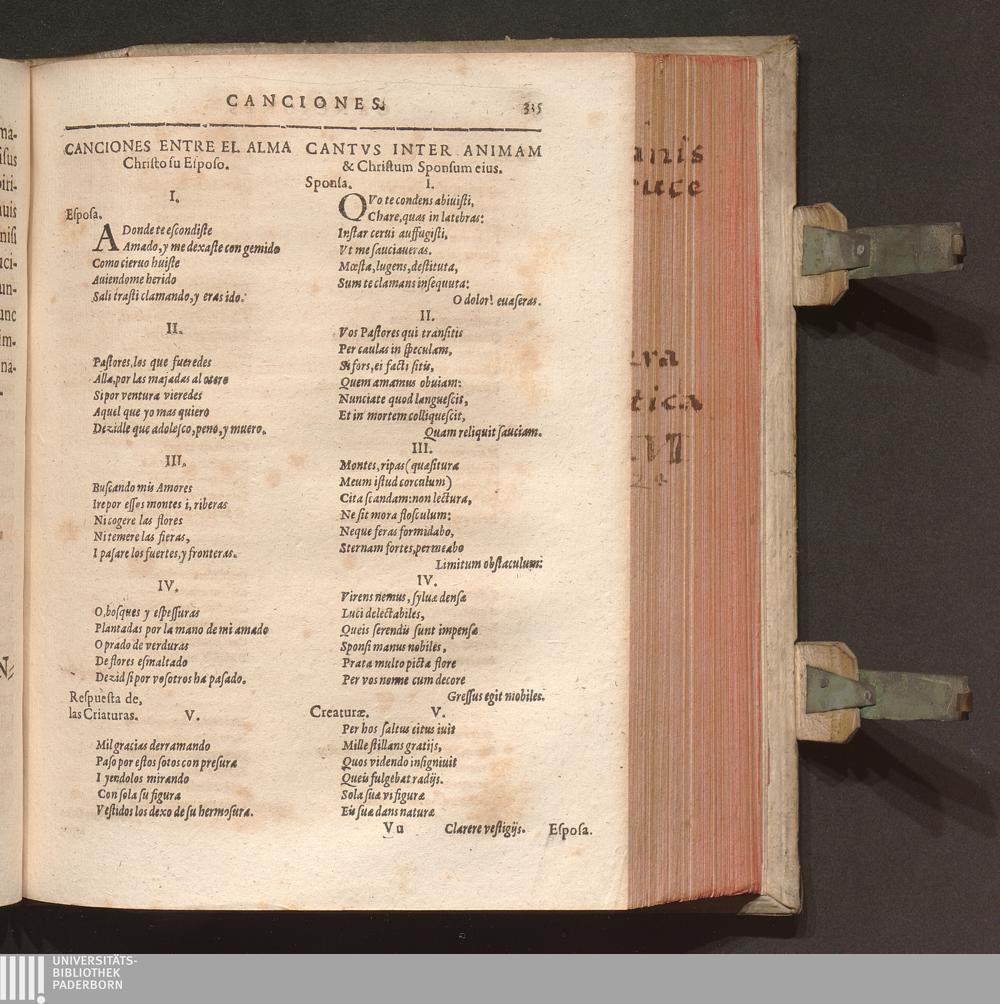 CANCIONES.
335
CANCIONES ENTRE EL ALMA
Chriſto ſu Eſpoſo.
I.
Eſpoſa.
A Donde te eſcondiſte
Amado, y me dexaſte con gemido
Como cieruo huiſte
Auiendome herido
Sali traſti clamando, y eras ido.
II.
Paſtores, los que fueredes
Alla, por las majadas al otero
Si por ventura vieredes
Aquel que yo mas quiero
Dezidle que adoleſco, peno, y muero.
III.
Buſcando mis Amores
Ire por eſſos montes i, riberas
Ni cogere las flores
Ni temere las fieras,
I paſare los fuertes, y fronteras.
IV.
O, boſques y eſpeſſuras
Plantadas por la mano de mi amado
O prado de verduras
De flores eſmaltado
Dezid ſi por voſotros ha paſado.
Reſpueſta de,
las Criaturas. V.
Mil gracias derramando
Paſo por eſtos ſotos con preſura
I yendolos mirando
Con ſola ſu figura
Veſtidos los dexo de ſu hermoſura.
CANTVS INTER ANIMAM
& Chriſtum Sponſum eius.
Sponſa. I.
QVo te condens abiuiſti,
Chare, quas in latebras:
Inſtar cerui auffugiſti,
Vt me ſauciaueras.
Mœſta, lugens, deſtituta,
Sum te clamans inſequuta:
O dolor! euaſeras.
II.
Vos Paſtores qui tranſitis
Per caulas in ſpeculam,
Si fors, ei facti ſitis,
Quem amamus obuiam:
Nunciate quod langueſcit,
Et in mortem colliqueſcit,
Quam reliquit ſauciam.
III.
Montes, ripas (quæſitura
Meum iſtud corculum)
Cita ſcandam: non lectura,
Ne ſit mora floſculum:
Neque feras formidabo,
Sternam fortes, permeabo
Limitum obſtaculum:
IV.
Virens nemus, ſyluæ denſæ
Luci delectabiles,
Queis ſerendis ſunt impenſæ
Sponſi manus nobiles,
Prata multo picta flore
Per vos nonne cum decore
Greſſus egit mobiles.
Creaturæ. V.
Per hos ſaltus citus iuit
Mille ſtillans gratijs,
Quos videndo inſigniuit
Queis fulgebat radijs.
Sola ſuæ vi figuræ
Eis ſuæ dans naturæ
Clarere veſtigijs.
Vu
Eſpoſa.
UNIVERSITÄTS-
BIBLIOTHEK
PADERBORN